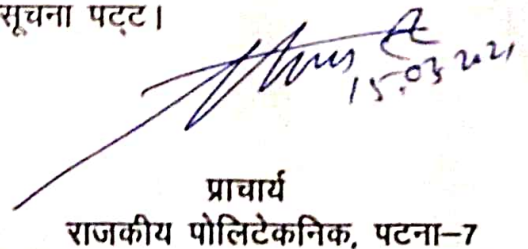 सूचना पट्ट।
15.03.2021
प्राचार्य
राजकीय पोलिटेकनिक, पटना–7